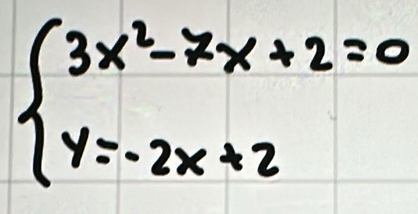 3x²-7x+2=0
y=-2x+2